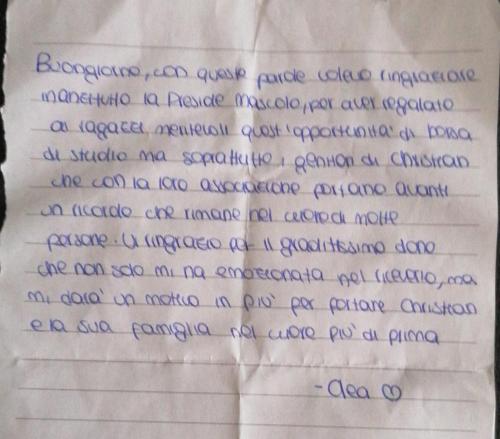 Buongiorno, con queste parole volevo ringraziare
innanzitutto la Preside Mascolo, per aver regalato
ai ragazzi meritevoli quest'opportunità di borsa
di studio ma soprattutto i genitori di Christian
che con la loro associazione portano avanti
un ricordo che rimane nel cuore di molte
persone. Vi ringrazio per il graditissimo dono
che non solo mi ha emozionata nel riceverlo, ma
mi darà un motivo in più per portare Christian
e la sua famiglia nel cuore più di prima
- Clea ♡